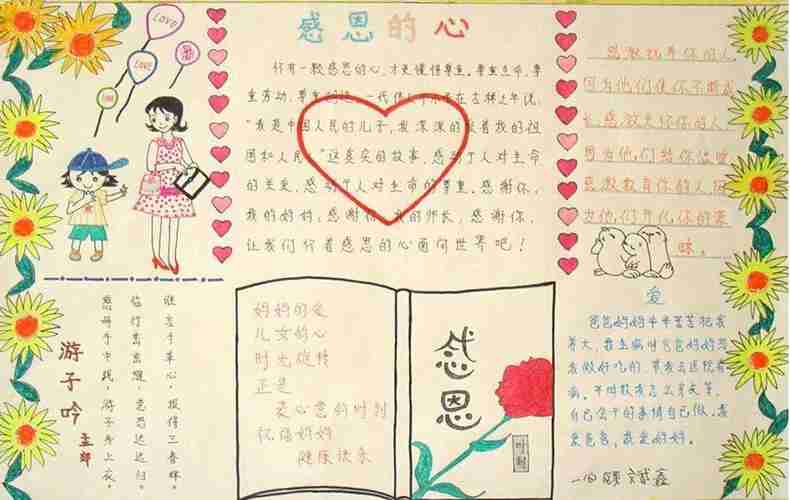 感恩的心
怀有一颗感恩的心,才更懂得尊重。尊重生命,尊
重劳动,尊重创造。一代伟人邓小平在古稀之年说:
“我是中国人民的儿子,我深深的爱着我的祖
国和人民。”这真实的故事,感动了人对生命
的关爱,感动了人对生命的尊重。感谢你,
我的妈妈;感谢你,我的师长,感谢你。
让我们怀着感恩的心面向世界吧!
感激抚养你的人
因为他们使你不断成
长感激关怀你的人
因为他们给你温暖
感激教育你的人因
为他们开化你的蒙
昧。
LOVE
LOVE
谁言寸草心,报得三春晖。
临行密密缝,意恐迟迟归。
慈母手中线,游子身上衣。
游子吟
孟郊
妈妈的爱
儿女的心
时光旋转
正是
爱心意的时刻
祝福妈妈
健康快乐
感恩
爱
爸爸妈妈辛辛苦苦把我
养大,我生病时爸爸妈妈给
我做好吃的,带我去医院看
病。
自己会干的事情自己做。
我爱妈妈。